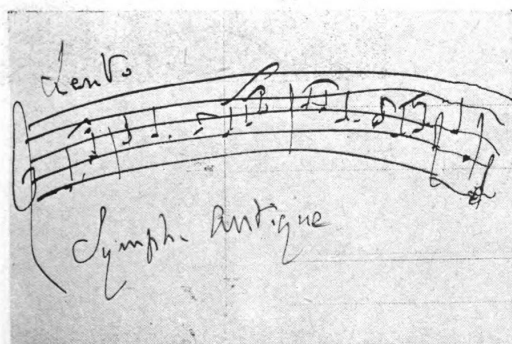 Lento
Symph. Antique